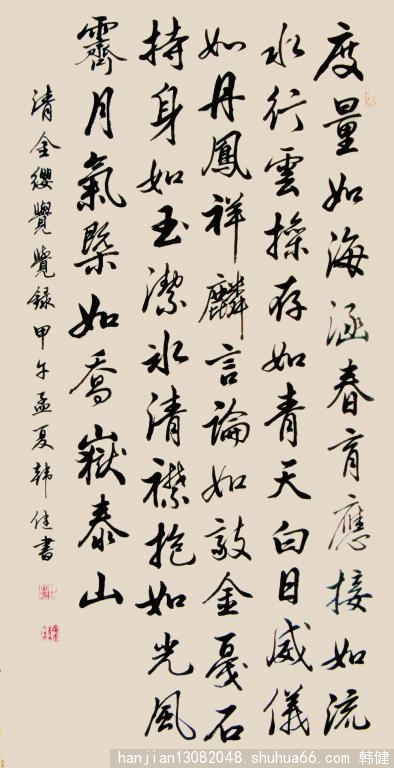 度量如海涵春育應接如流
水行雲操存如青天白日威儀
如丹鳳祥麟言論如敲金戛石
持身如玉潔冰清襟抱如光風
霽月氣槩如喬嶽泰山
清金纓覺覺録甲午孟夏韓佳書
hanjian13082048.shuhua66.com 韩健